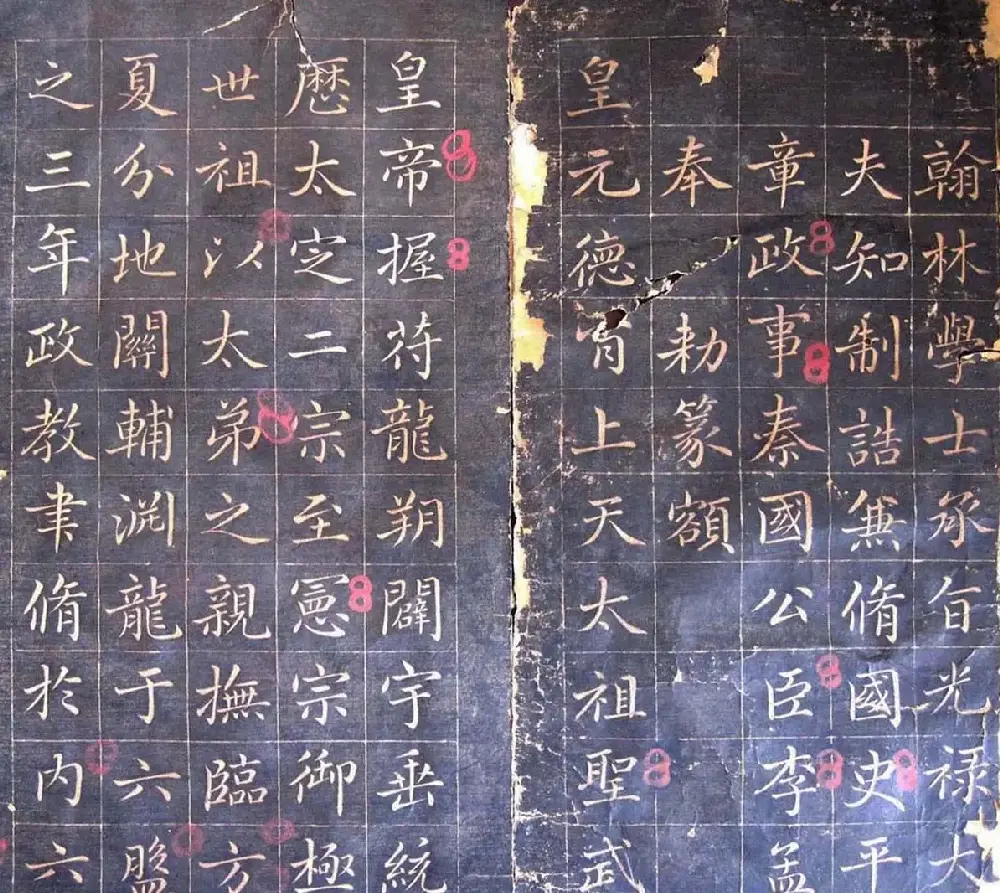 翰林學士承旨光禄大
夫知制誥兼脩國史平
章政事秦國公臣李孟
奉勑篆額
皇元德肖上天太祖聖武
皇帝握苻龍朔闢宇垂統
歷太定二宗至憲宗御極
世祖以太弟之親撫臨方
夏分地關輔淵龍于六盤
之三年政教聿脩於内六